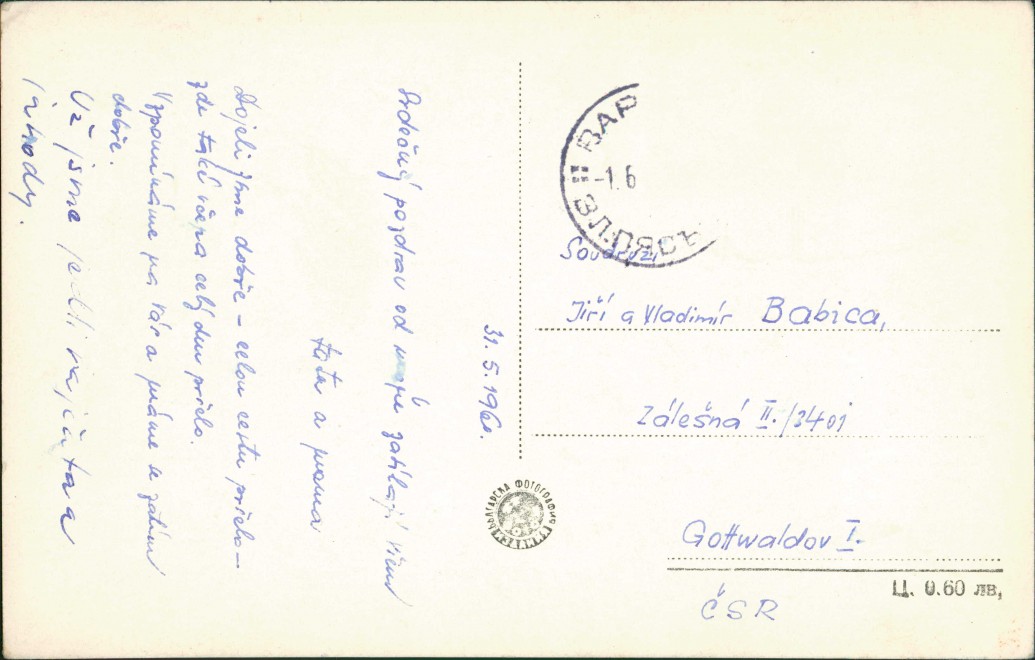 31. 5. 1960.
Srdečný pozdrav od moře zasílají Vám
táta a mama
Dojeli jsme dobře – celou cestu pršelo –
zde také včera celý den pršelo.
Vzpomínáme na Vás a máme se zatím
dobře.
Už jsme jedli rajčata a
jahody.
ВАР
-1.6
ЗЛ.ПЯСЪ
Soudruzi
Jiří a Vladimír Babica,
Zálešná II./3401
Gottwaldov I.
ČSR
БЪЛГАРСКА ФОТОГРАФИЯ
Ц. 0.60 лв,